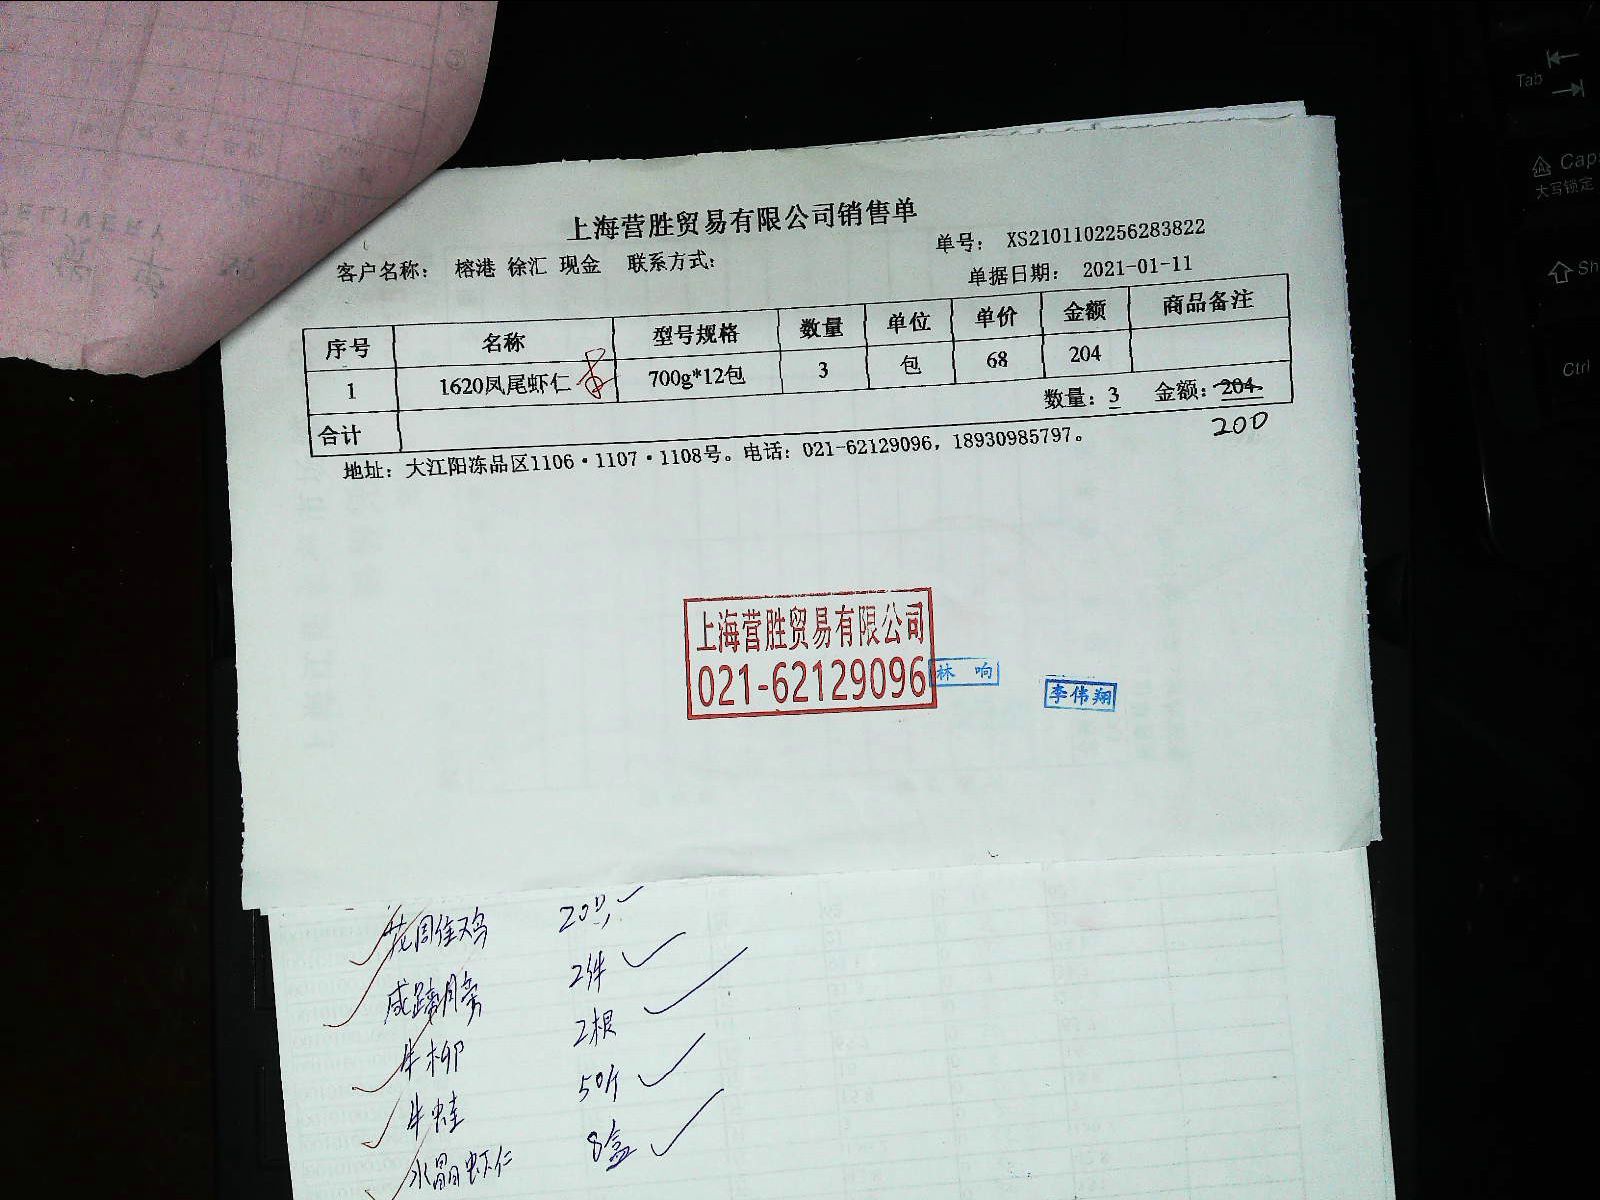 上海营胜贸易有限公司销售单
单号： XS2101102256283822
客户名称： 榕港 徐汇 现金 联系方式：
单据日期： 2021-01-11
序号 名称 型号规格 数量 单位 单价 金额 商品备注
1 1620凤尾虾仁 700g*12包 3 包 68 204
合计 数量：3 金额：204
200
地址：大江阳冻品区1106·1107·1108号。电话：021-62129096，18930985797。
上海营胜贸易有限公司
021-62129096
林 响
李伟翔
20只
2件
牛柳 2根
牛蛙 50斤
水晶虾仁 8盒
DELIVERY
Tab
Caps
大写锁定
Sh
Ctrl